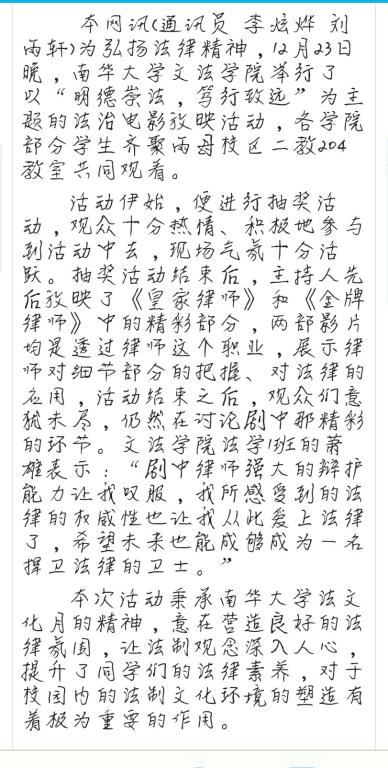 本网讯(通讯员 李炫烨 刘
雨轩)为弘扬法律精神，12月23日
晚，南华大学文法学院举行了
以“明德崇法，笃行致远”为主
题的法治电影放映活动，各学院
部分学生齐聚雨母校区二教204
教室共同观看。
活动伊始，便进行抽奖活
动，观众十分热情、积极地参与
到活动中去，现场气氛十分活
跃。抽奖活动结束后，主持人先
后放映了《皇家律师》和《金牌
律师》中的精彩部分，两部影片
均是透过律师这个职业，展示律
师对细节部分的把握、对法律的
应用，活动结束之后，观众们意
犹未尽，仍然在讨论剧中那精彩
的环节。文法学院法学1班的萧
雄表示：“剧中律师强大的辩护
能力让我叹服，我所感受到的法
律的权威性也让我从此爱上法律
了，希望未来也能成够成为一名
捍卫法律的卫士。”
本次活动秉承南华大学法文
化月的精神，意在营造良好的法
律氛围，让法制观念深入人心，
提升了同学们的法律素养，对于
校园内的法制文化环境的塑造有
着极为重要的作用。